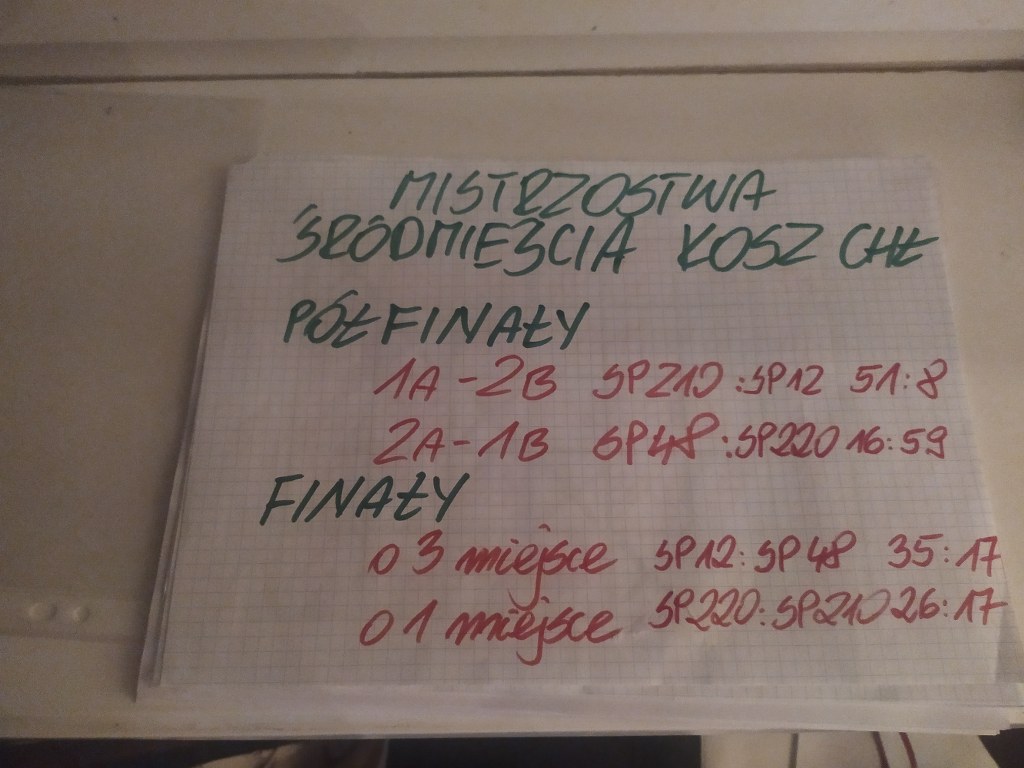 MISTRZOSTWA
ŚRÓDMIEŚCIA KOSZ CHŁ
PÓŁFINAŁY
1A - 2B SP210 : SP12 51:8
2A - 1B SP48 : SP220 16:59
FINAŁY
o 3 miejsce SP12 : SP48 35:17
o 1 miejsce SP220 : SP210 26:17